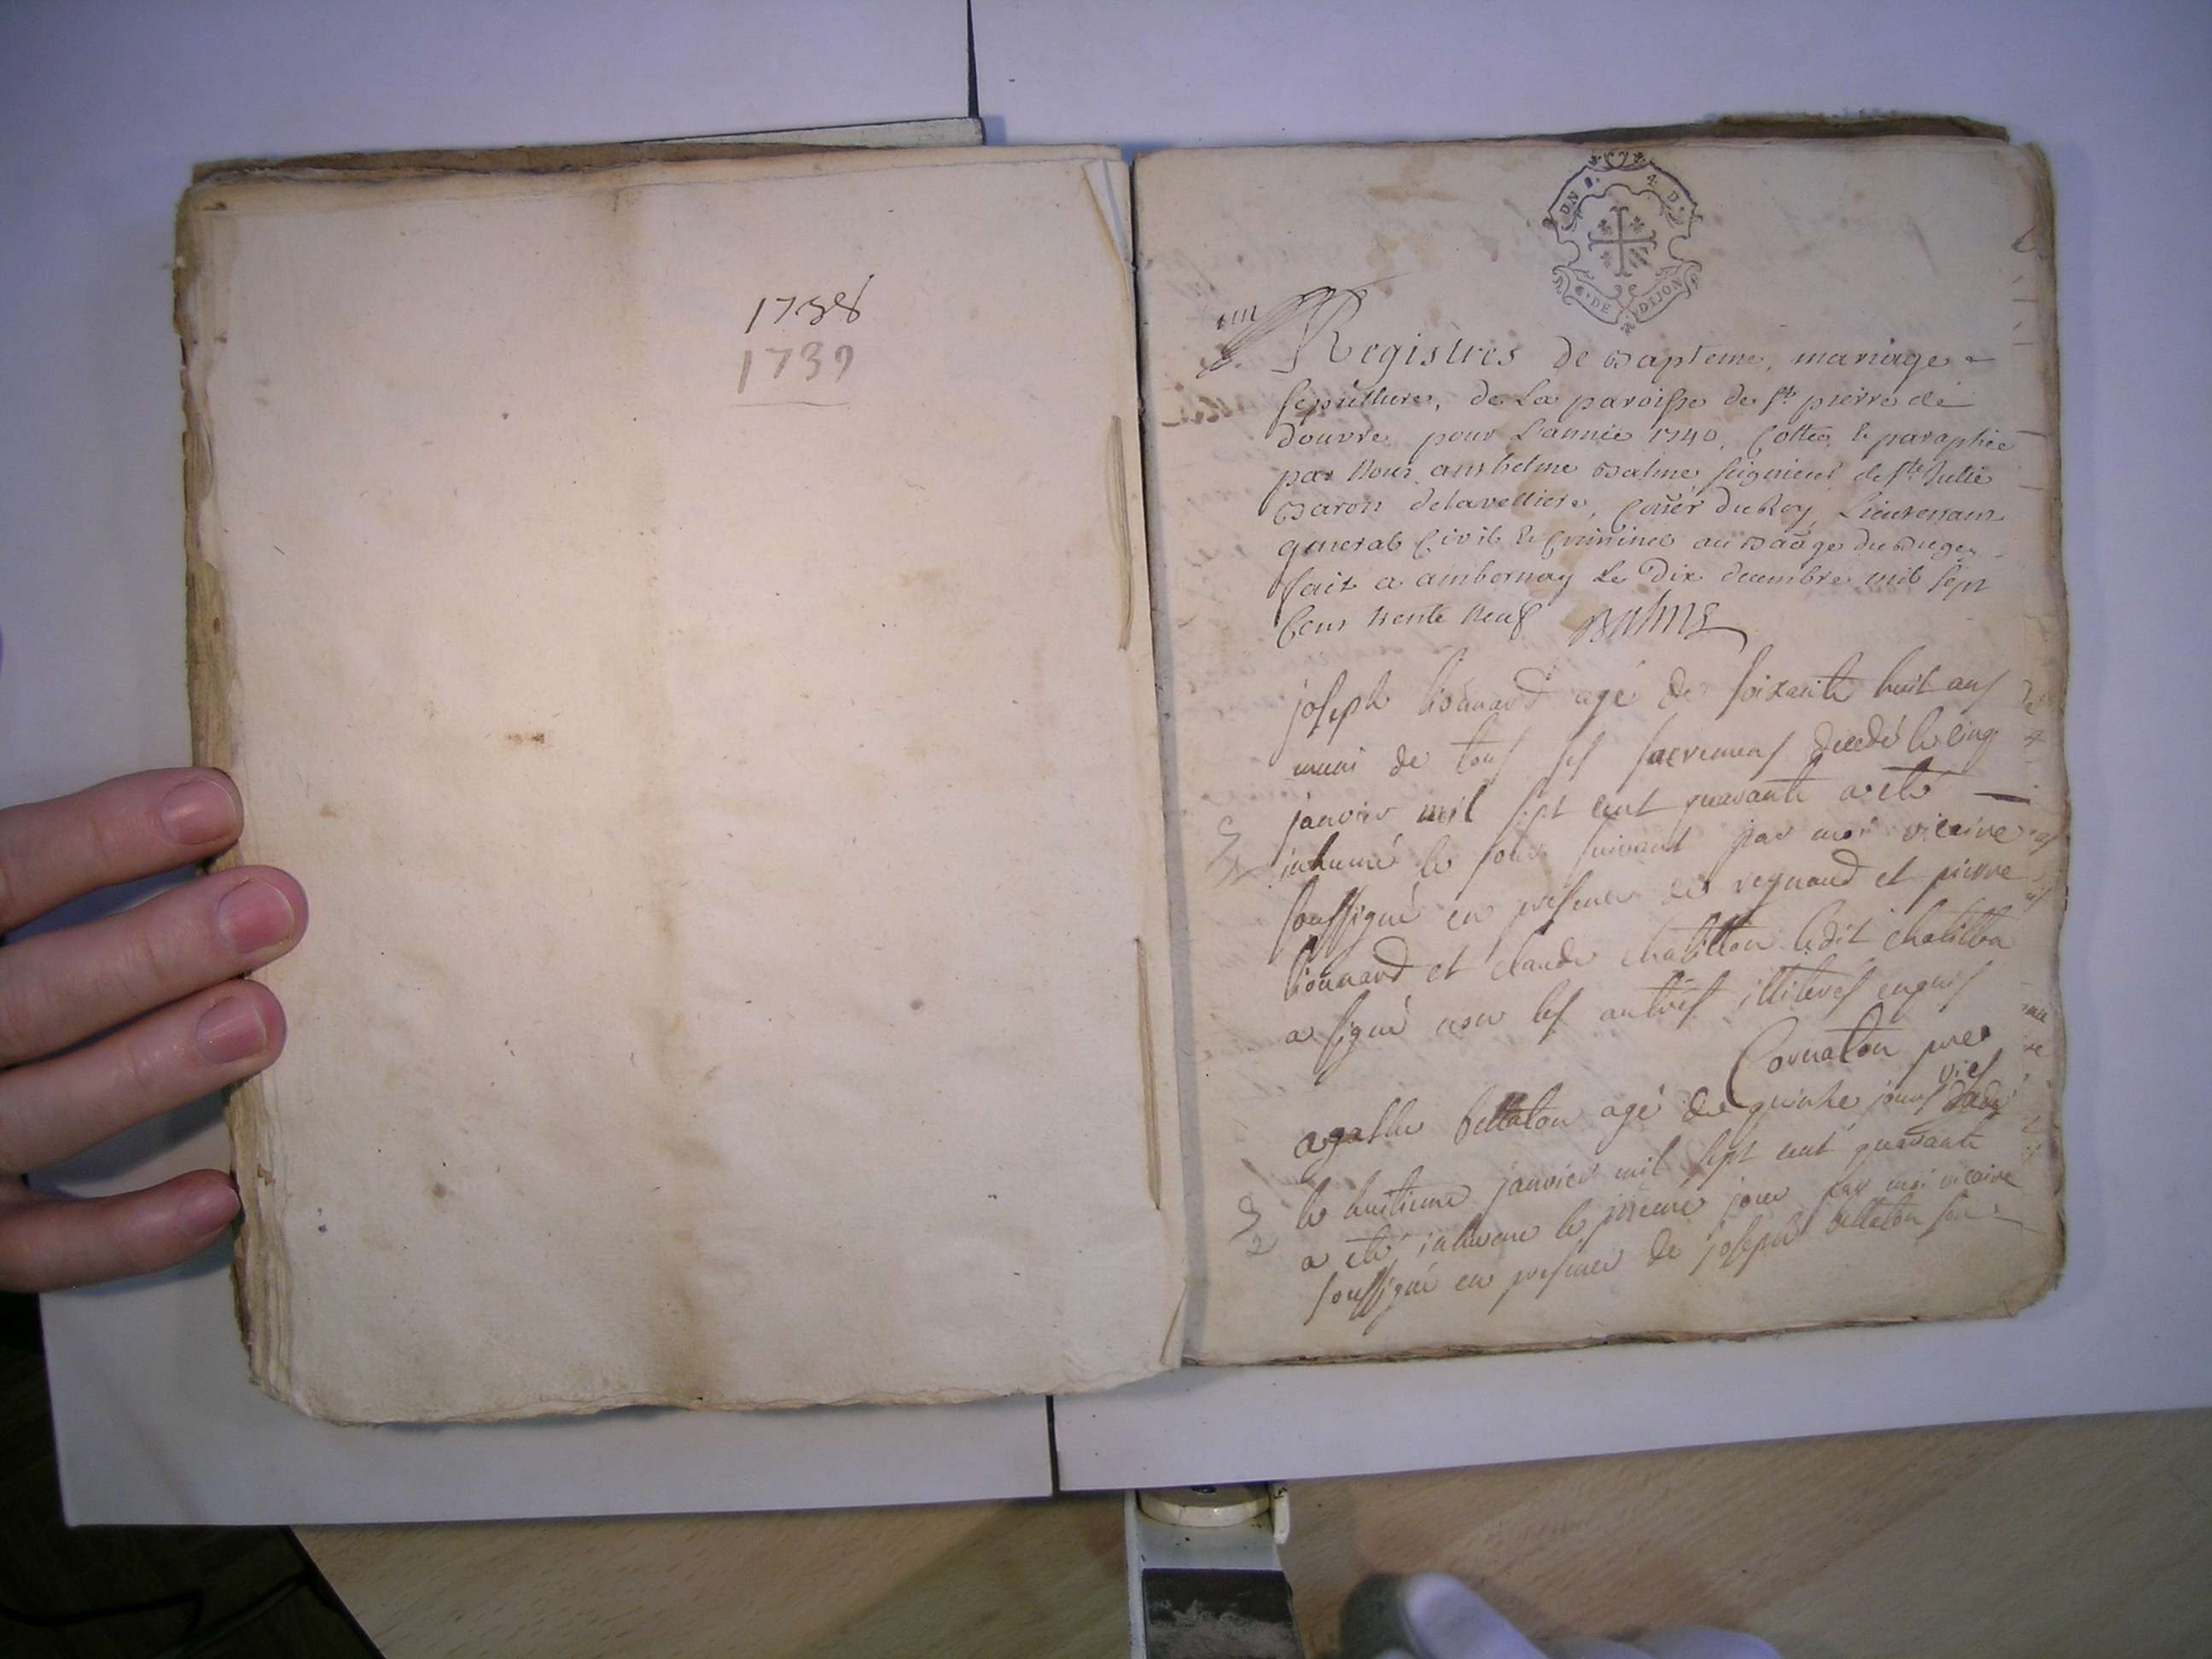 1738
1739
UN S. 4 D.
G. DE DIJON
un
Registres de Bapteme, mariage
sepultures, de La paroisse de st pierre de
douvre pour L'année 1740, Cottée & paraphée
par Nous anthelme Balme seigneur de ste Julie
Baron de la velliere, Coner du Roy, Lieutenant
general Civil & Criminel au Baage du Bugey
fait a ambornay Le Dix decembre mil sept
Cens trente neuf Balme
joseph lionnard agé de soixante huit ans
muni de tous ses sacremens decedé le cinq
janvier mil sept cent quarante a eté
inhumé le jour suivant par moi vicaire
soussigné en presence de reynaud et pierre
lionnard et claude chatillon ledit chatillon
a signé non les autres illiteres enquis
Cornaton pre
vic
agathe bellaton agé de quinze jours
S
1
le huitieme janvier mil sept cent quarante
a eté inhumé le meme jour par moi vicaire
S
2
soussigné en presence de joseph bellaton son